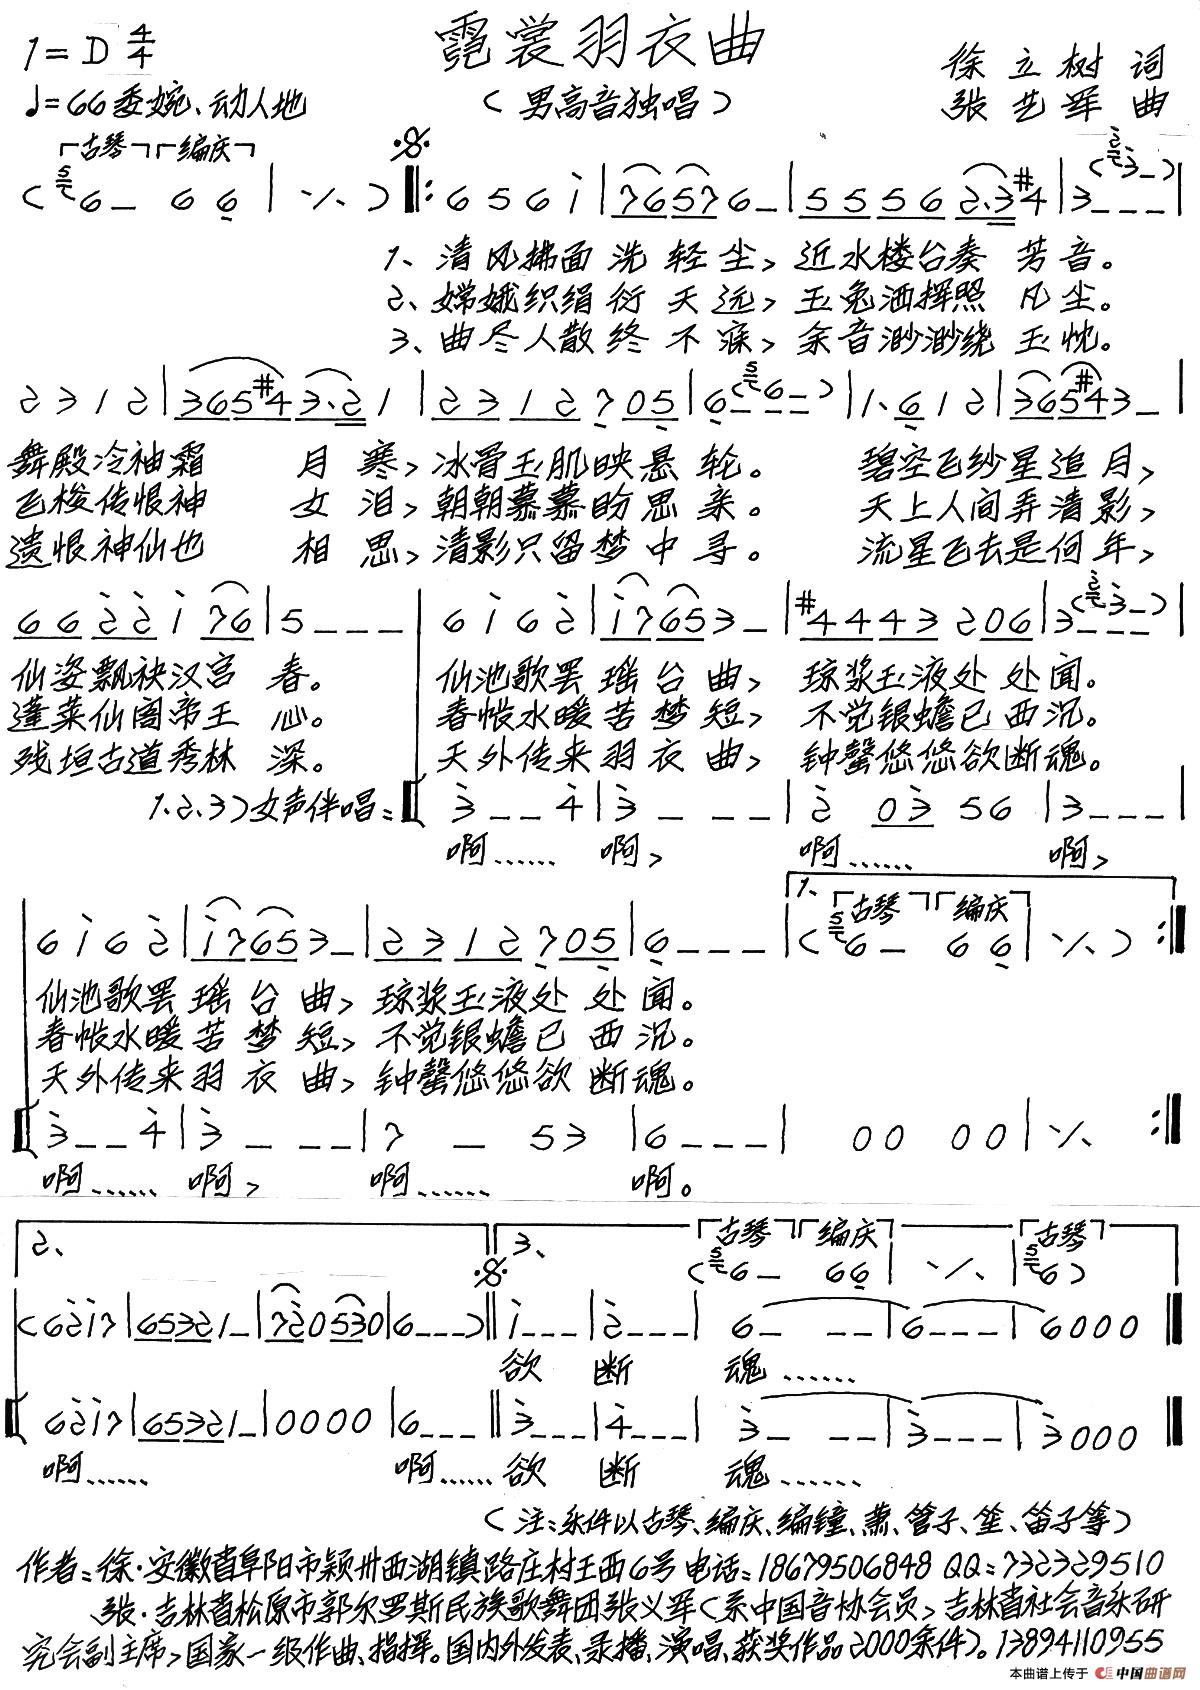 霓裳羽衣曲
1=D 4/4
徐立树 词
♩=66 委婉、动人地
(男高音独唱)
张艺军 曲
古琴 编庆
1、清风拂面洗轻尘, 近水楼台奏芳音。
2、嫦娥织绢衍天远, 玉兔洒挥照凡尘。
3、曲尽人散终不寐, 余音渺渺绕玉枕。
舞殿冷袖霜月寒, 冰骨玉肌映悬轮。 碧空飞纱星追月,
飞梭传恨神女泪, 朝朝慕慕盼思亲。 天上人间弄清影,
遗恨神仙也相思, 清影只留梦中寻。 流星飞去是何年,
仙姿飘袂汉宫春。 仙池歌罢瑶台曲, 琼浆玉液处处闻。
蓬莱仙阁帝王心。 春帐水暖苦梦短, 不觉银蟾已西沉。
残垣古道秀林深。 天外传来羽衣曲, 钟罄悠悠欲断魂。
1.2.3)女声伴唱:
啊…… 啊, 啊…… 啊,
1、 古琴 编庆
仙池歌罢瑶台曲, 琼浆玉液处处闻。
春帐水暖苦梦短, 不觉银蟾已西沉。
天外传来羽衣曲, 钟罄悠悠欲断魂。
啊…… 啊, 啊…… 啊。
2、 3、 古琴 编庆 古琴
欲 断 魂……
啊…… 啊…… 欲 断 魂……
(注:乐件以古琴、编庆、编鐘、萧、管子、笙、笛子等)
作者:徐·安徽省阜阳市颍卅西湖镇路庄村王西6号 电话:18679506848 QQ:732329510
张·吉林省松原市郭尔罗斯民族歌舞团张义军(系中国音协会员,吉林省社会音乐研
究会副主席,国家一级作曲、指挥。国内外发表、录播、演唱、获奖作品2000余件)。13894110955
本曲谱上传于 中国曲谱网